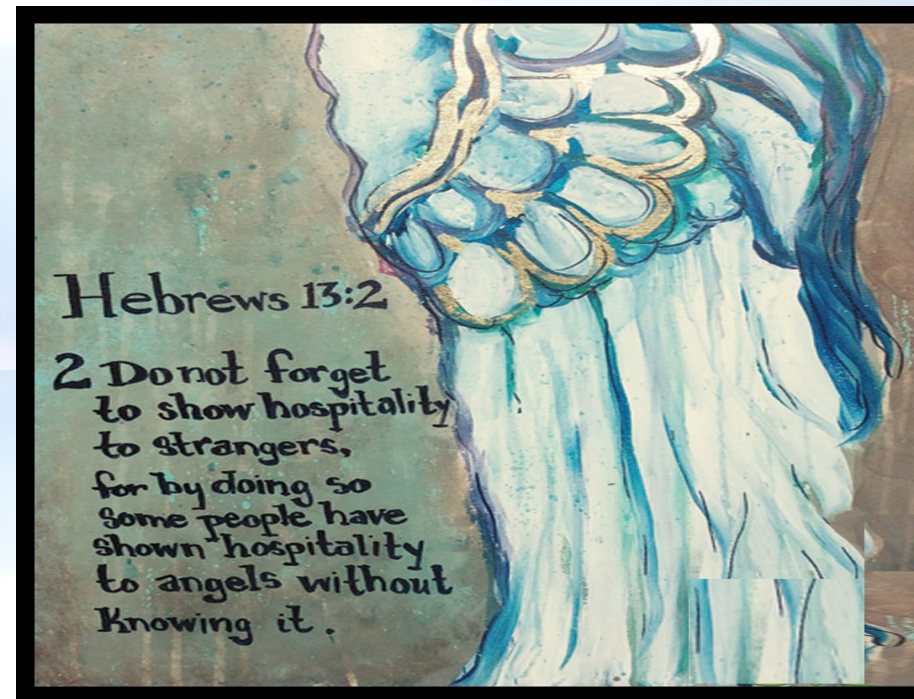 Hebrews 13:2
2 Do not forget
to show hospitality
to strangers,
for by doing so
some people have
shown hospitality
to angels without
Knowing it.